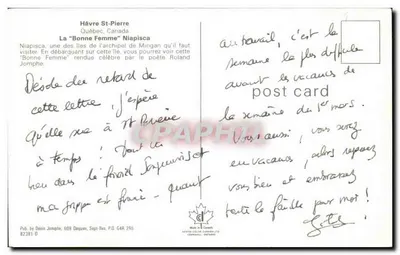 Hâvre St-Pierre
Québec, Canada
La "Bonne Femme" Niapisca
Niapisca, une des îles de l'archipel de Mingan qu'il faut
visiter. En débarquant sur cette île, vous pourrez voir cette
"Bonne Femme" rendue célèbre par le poète Roland
Jomphe.
Désolé du retard de
cette lettre j'espère
qu'elle sera à St
à temps! Tout va
bien dans le froid
ma grippe est finie - quant
au travail, c'est la
semaine la plus difficile
avant les vacances de
la semaine du 1er mars.
Vous aussi, vous serez
en vacances, alors reposez
vous bien et embrassez
toute la famille pour moi!
post card
CPAPHIL
Pub. de Dani Jomphe,
82285 D
MADE IN CANADA